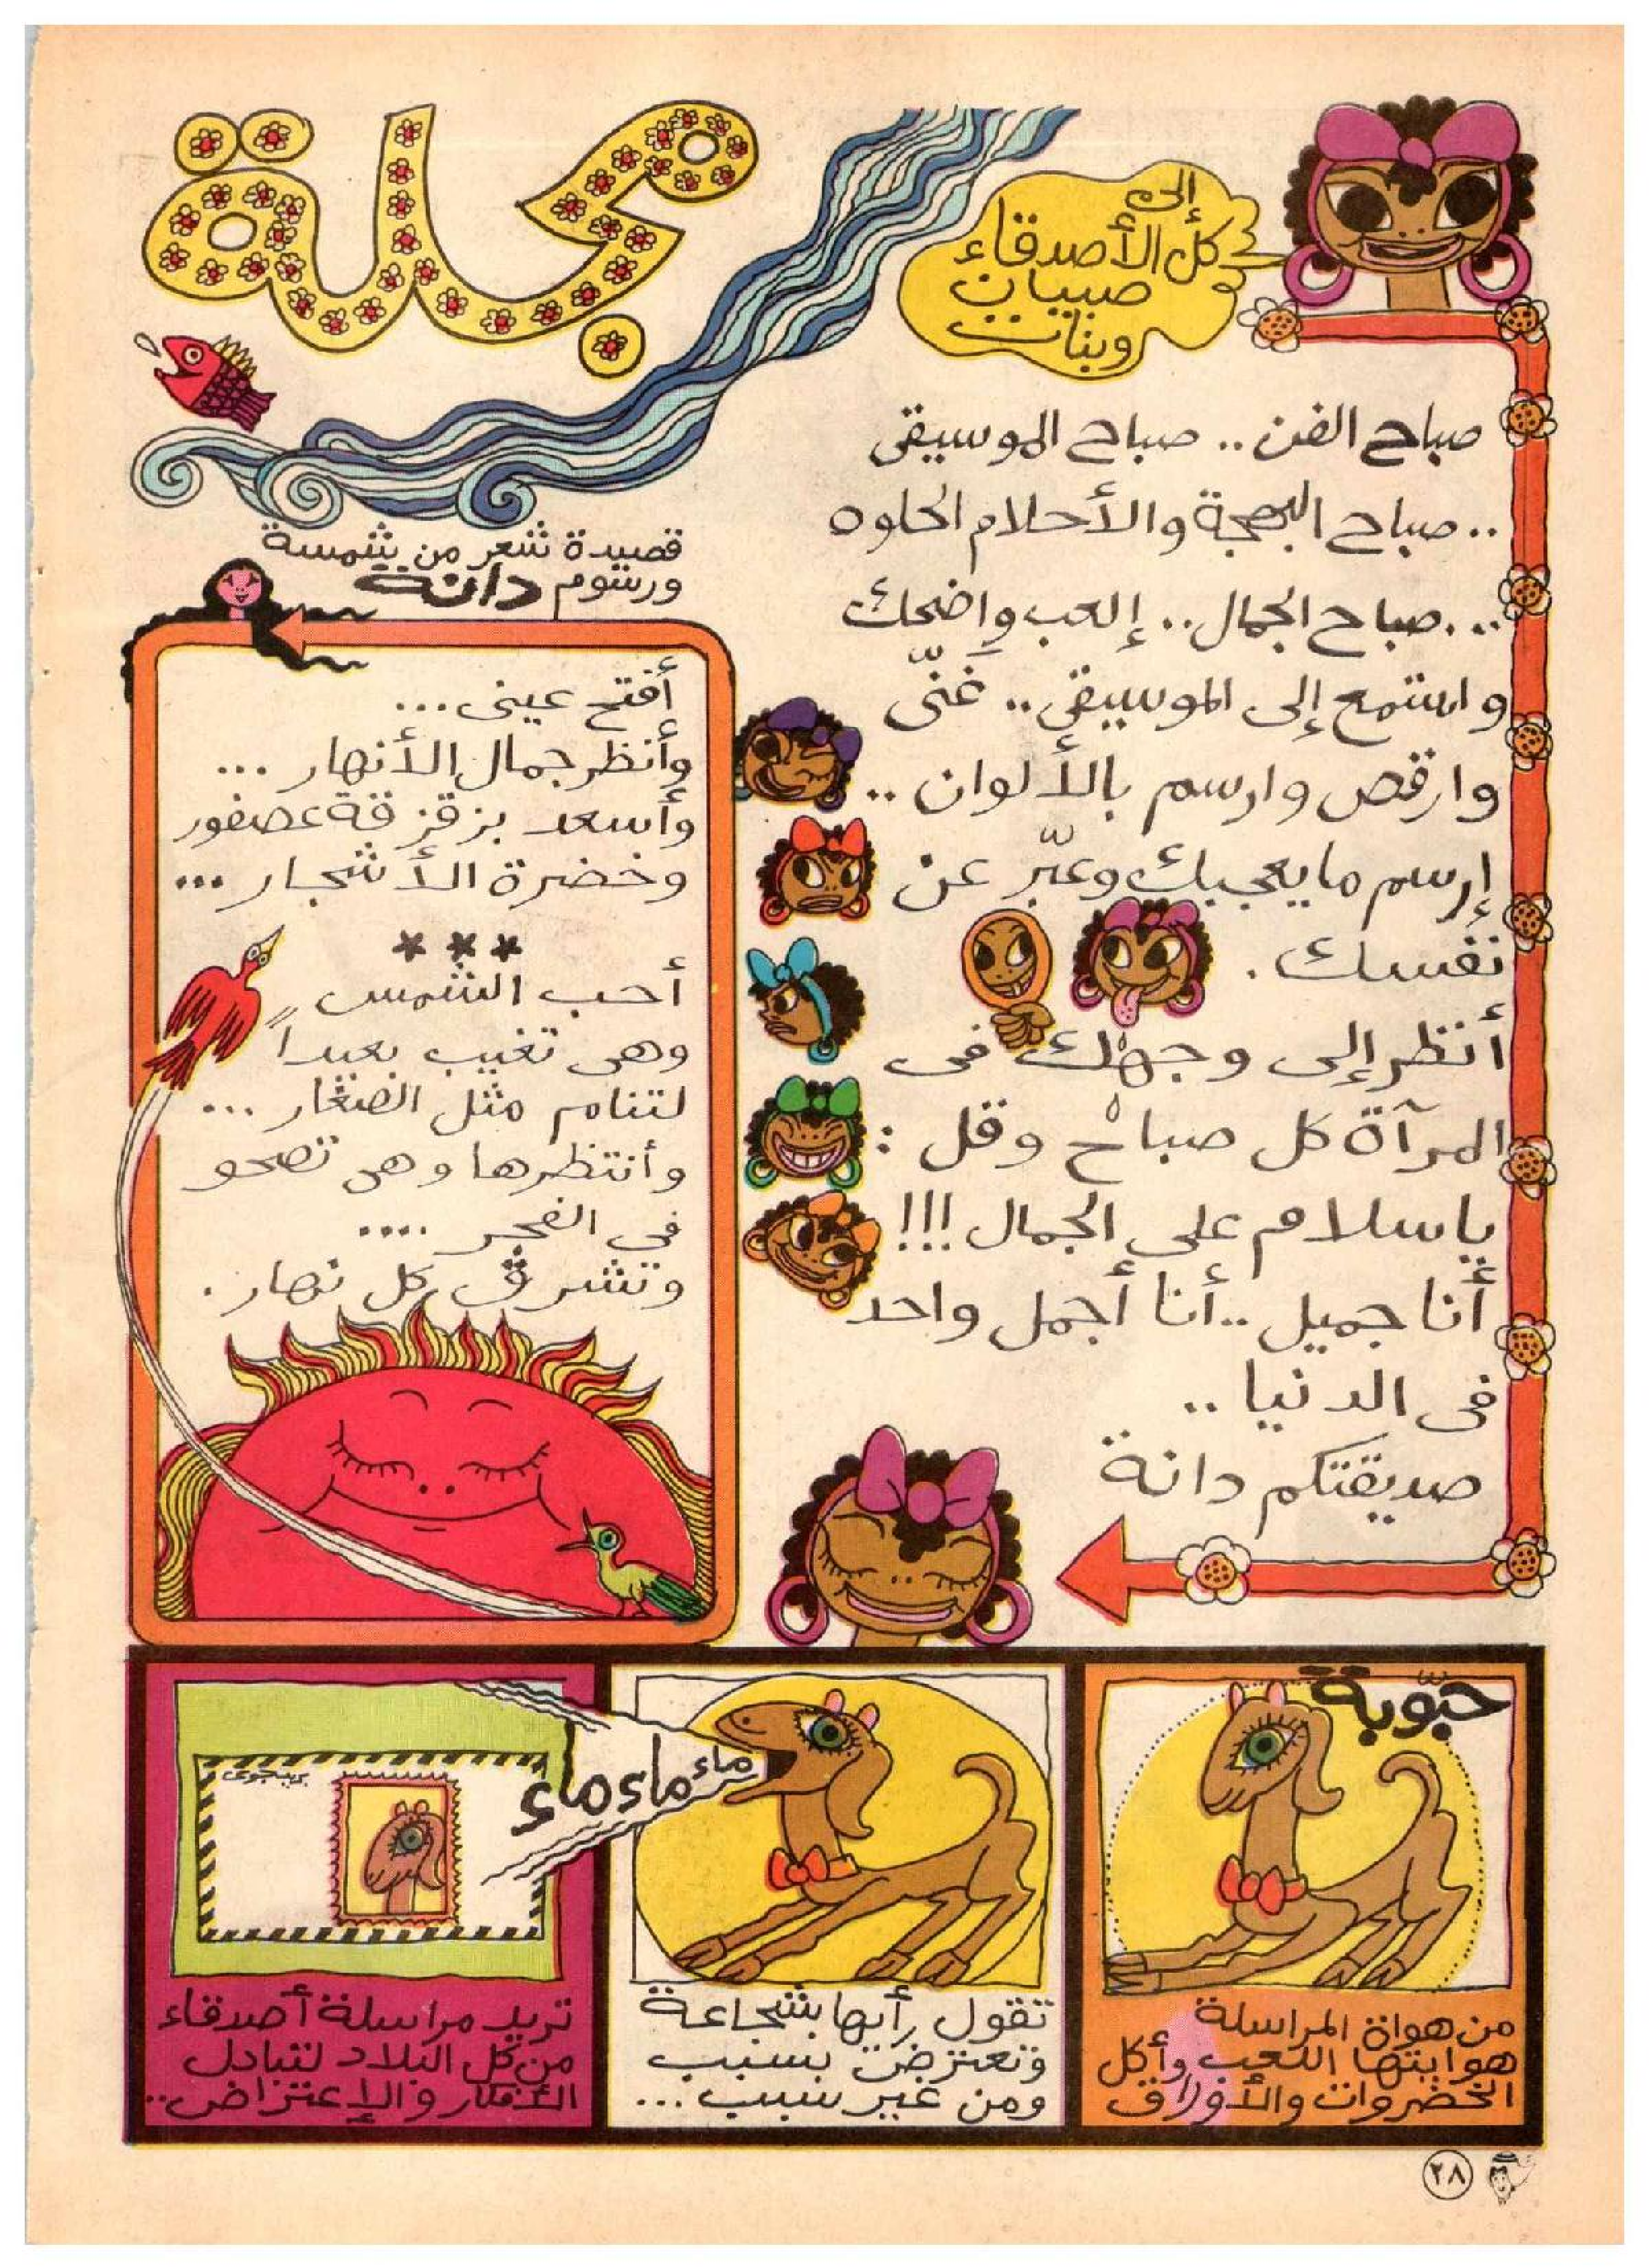 إلى
كل الأصدقاء
صبيان
وبنات
صباح الفن .. صباح الموسيقى
.. صباح البهجة والأحلام الحلوه
... صباح الجمال .. إلعب واضحك
واستمع إلى الموسيقى .. غَنّى
وارقص وارسم بالألوان ..
إرسم ما يعجبك وعبّر عن
نفسك .
أنظر إلى وجهك فى
المرآة كل صباح وقل :
يا سلام على الجمال !!!
أنا جميل .. أنا أجمل واحد
فى الدنيا ..
صديقتكم دانة
مجلة
قصيدة شعر من شمسة
ورسوم دانة
أفتح عينى ...
وأنظر جمال الأنهار ...
وأسعد بزقزقة عصفور
وخضرة الأشجار ...
***
أحب الشمس
وهى تغيب بعيداً
لتنام مثل الصغار ...
وأنتظرها وهى تصحو
فى الفجر ....
وتشرق كل نهار .
حبّوبة
من هواة المراسلة
هوايتها اللعب وأكل
الخضروات والأوراق
ماء ماء ماء
تقول رأيها بشجاعة
وتعترض بسبب
ومن غير سبب ...
بريد جوى
تريد مراسلة أصدقاء
من كل البلاد لتبادل
الأفكار والإعتراض ..
٢٨